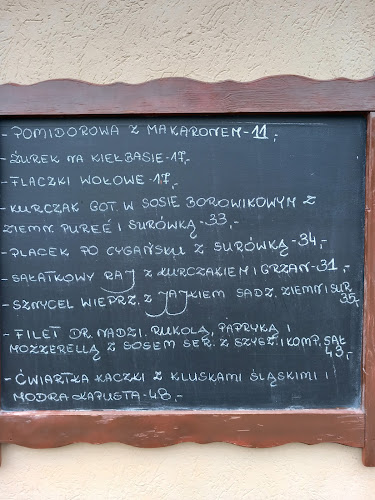 - POMIDOROWA Z MAKARONEM - 11,-
- ŻUREK NA KIEŁBASIE - 17,-
- FLACZKI WOŁOWE - 17,-
- KURCZAK GOT. W SOSIE BOROWIKOWYM Z
ZIEMN PUREÉ I SURÓWKĄ - 33,-
- PLACEK PO CYGAŃSKU Z SURÓWKĄ - 34,-
- SAŁATKOWY RAJ Z KURCZAKIEM I GRZAN - 31,-
- SZNYCEL WIEPRZ. Z JAJKIEM SADZ. ZIEMN I SUR
35,-
- FILET DR. NADZI. RUKOLĄ, PAPRYKĄ I
MOZZERELLĄ Z SOSEM SER. Z SZYSZ. I KOMP. SAŁ
43,-
- ĆWIARTKA KACZKI Z KLUSKAMI ŚLĄSKIMI I
MODRA KAPUSTA - 48,-